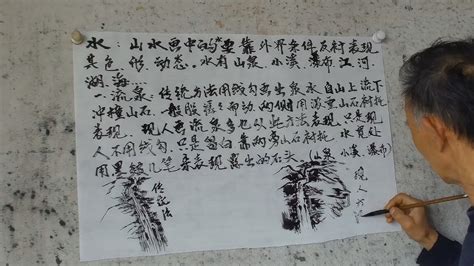 水：山水画中的水要靠外界条件反衬表现
其色、形、动态。水有山泉、小溪、瀑布江河、
湖、海……
一、流泉：传统方法用线勾画出泉水自山上流下
冲撞山石，一般 而动，两侧用浓墨山石衬托
表现。现人画流泉多也以此方法表现，只是现
人不用线勾，只是留白靠两旁山石衬托，水贯处
用墨 几笔来表现露出的石头（山泉
小溪、瀑布）
传统法
现人方法